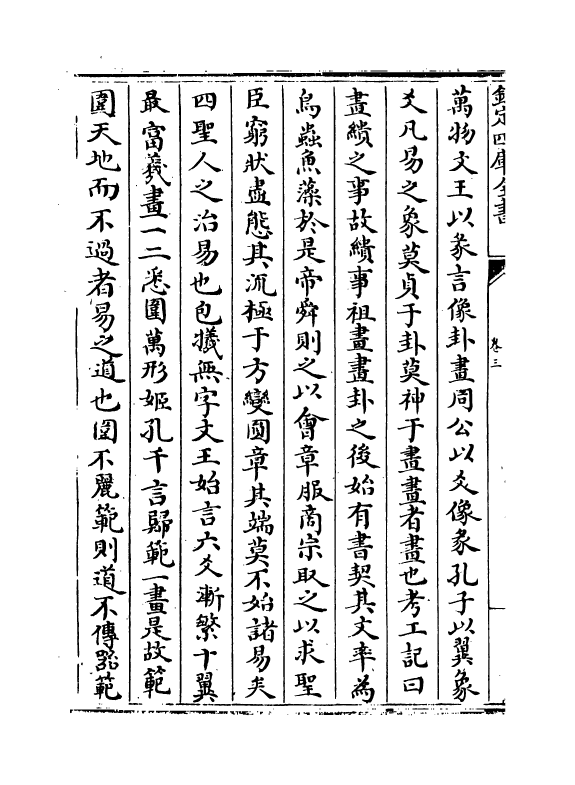 欽定四庫全書
卷三
萬物文王以彖言像卦畫周公以爻像象孔子以翼象
爻凡易之象莫貞于卦莫神于畫畫者畫也考工記曰
畫繢之事故繢事祖畫畫卦之後始有書契其文率為
鳥蟲魚藻於是帝舜則之以會章服商宗取之以求聖
臣窮狀盡態其流極于方變圓章其端莫不始諸易矣
四聖人之治易也包犧無字文王始言六爻漸繁十翼
最富羲畫一二悉圍萬形姬孔千言歸範一畫是故範
圍天地而不過者易之道也圍不麗範則道不傳器範